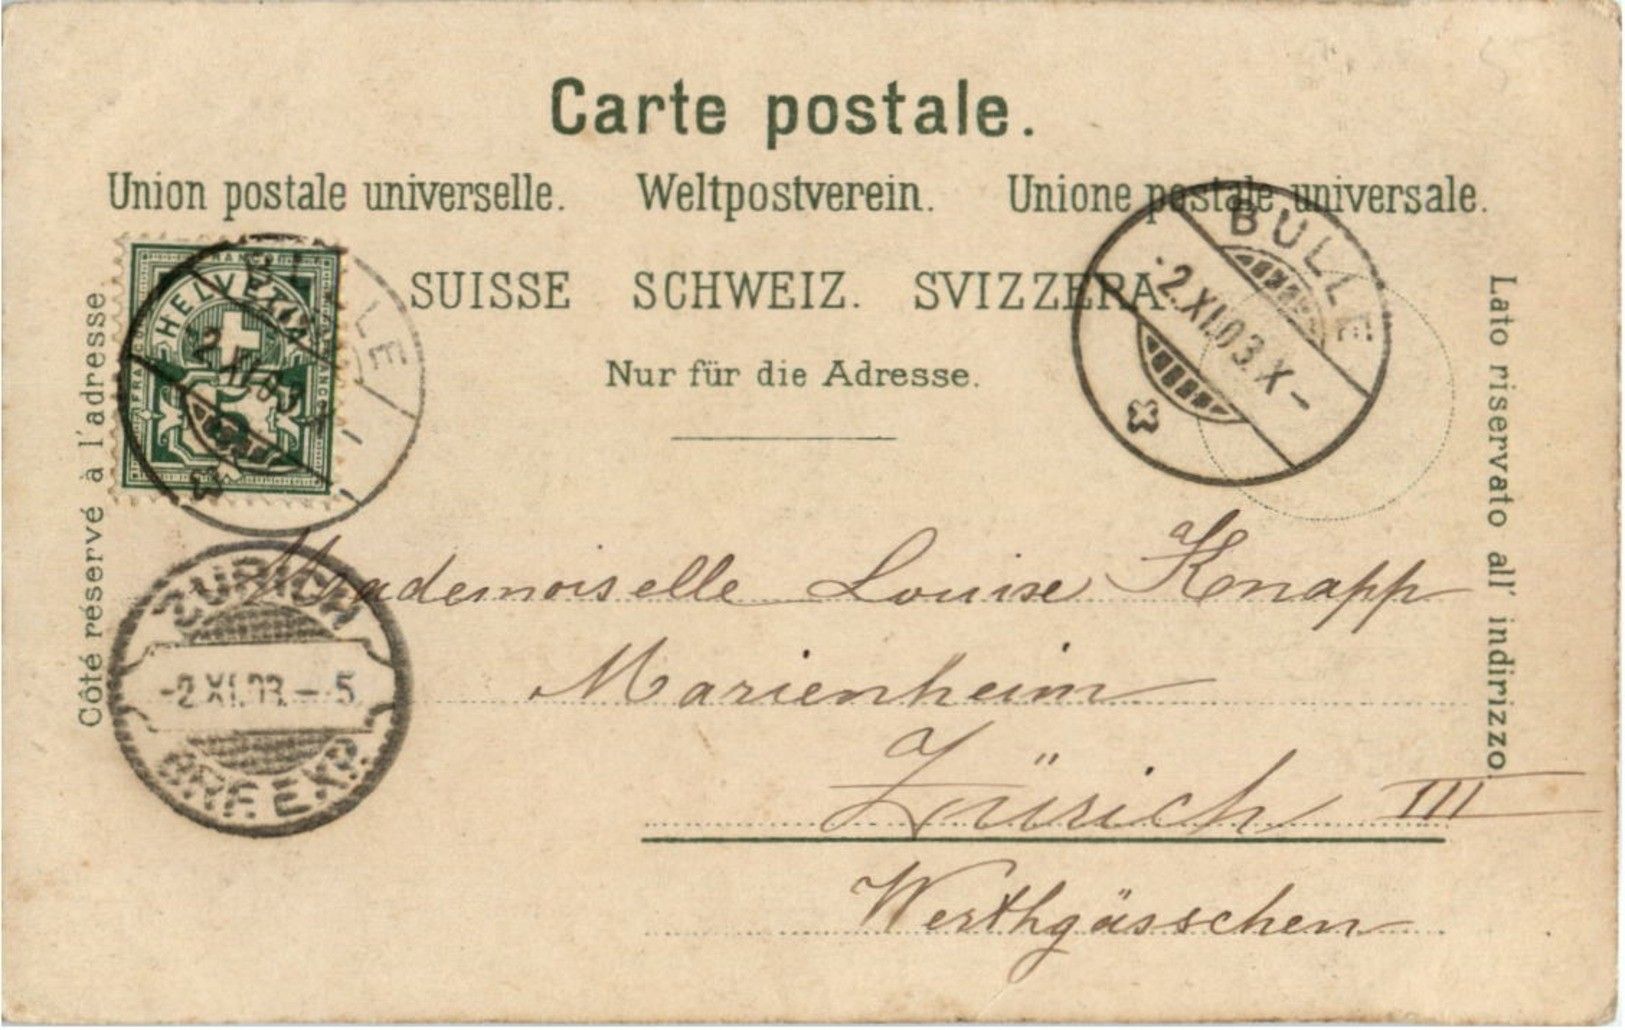 Carte postale.
Union postale universelle. Weltpostverein. Unione postale universale.
SUISSE SCHWEIZ. SVIZZERA.
Nur für die Adresse.
Côté réservé à l'adresse
Lato riservato all' indirizzo.
FRANCO
HELVETIA
5
BULLE
2.XI.03.X-
BULLE
-2.XI.03.X-
ZÜRICH
-2.XI.03.-5
BRF. EXP.
Mademoiselle Louise Knapp
Marienheim
Zürich III
Werthgässchen